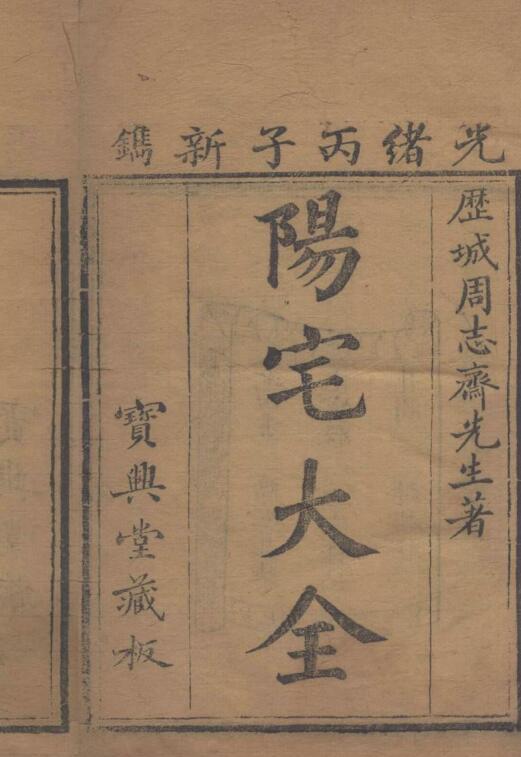 光緒丙子新鐫
歴城周志齋先生著
陽宅大全
寳興堂藏板